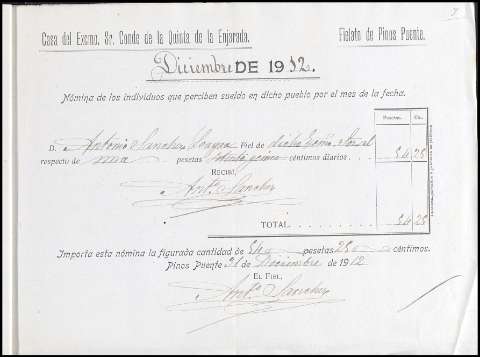 Casa del Excmo. Sr. Conde de la Quinta de la Enjarada.
Fielato de Pinos Puente.
Diciembre DE 1912.
Nómina de los individuos que perciben sueldo en dicho pueblo por el mes de la fecha.
Pesetas. Cts.
D. Antonio Sanchez Fiel de dicho
respecto de una pesetas setenta y cinco céntimos diarios 54 25
RECIBÍ,
Antº Sanchez
TOTAL 54 25
Importa esta nómina la figurada cantidad de 54 pesetas 25 céntimos.
Pinos Puente 31 de Diciembre de 1912
EL FIEL,
Antº Sanchez